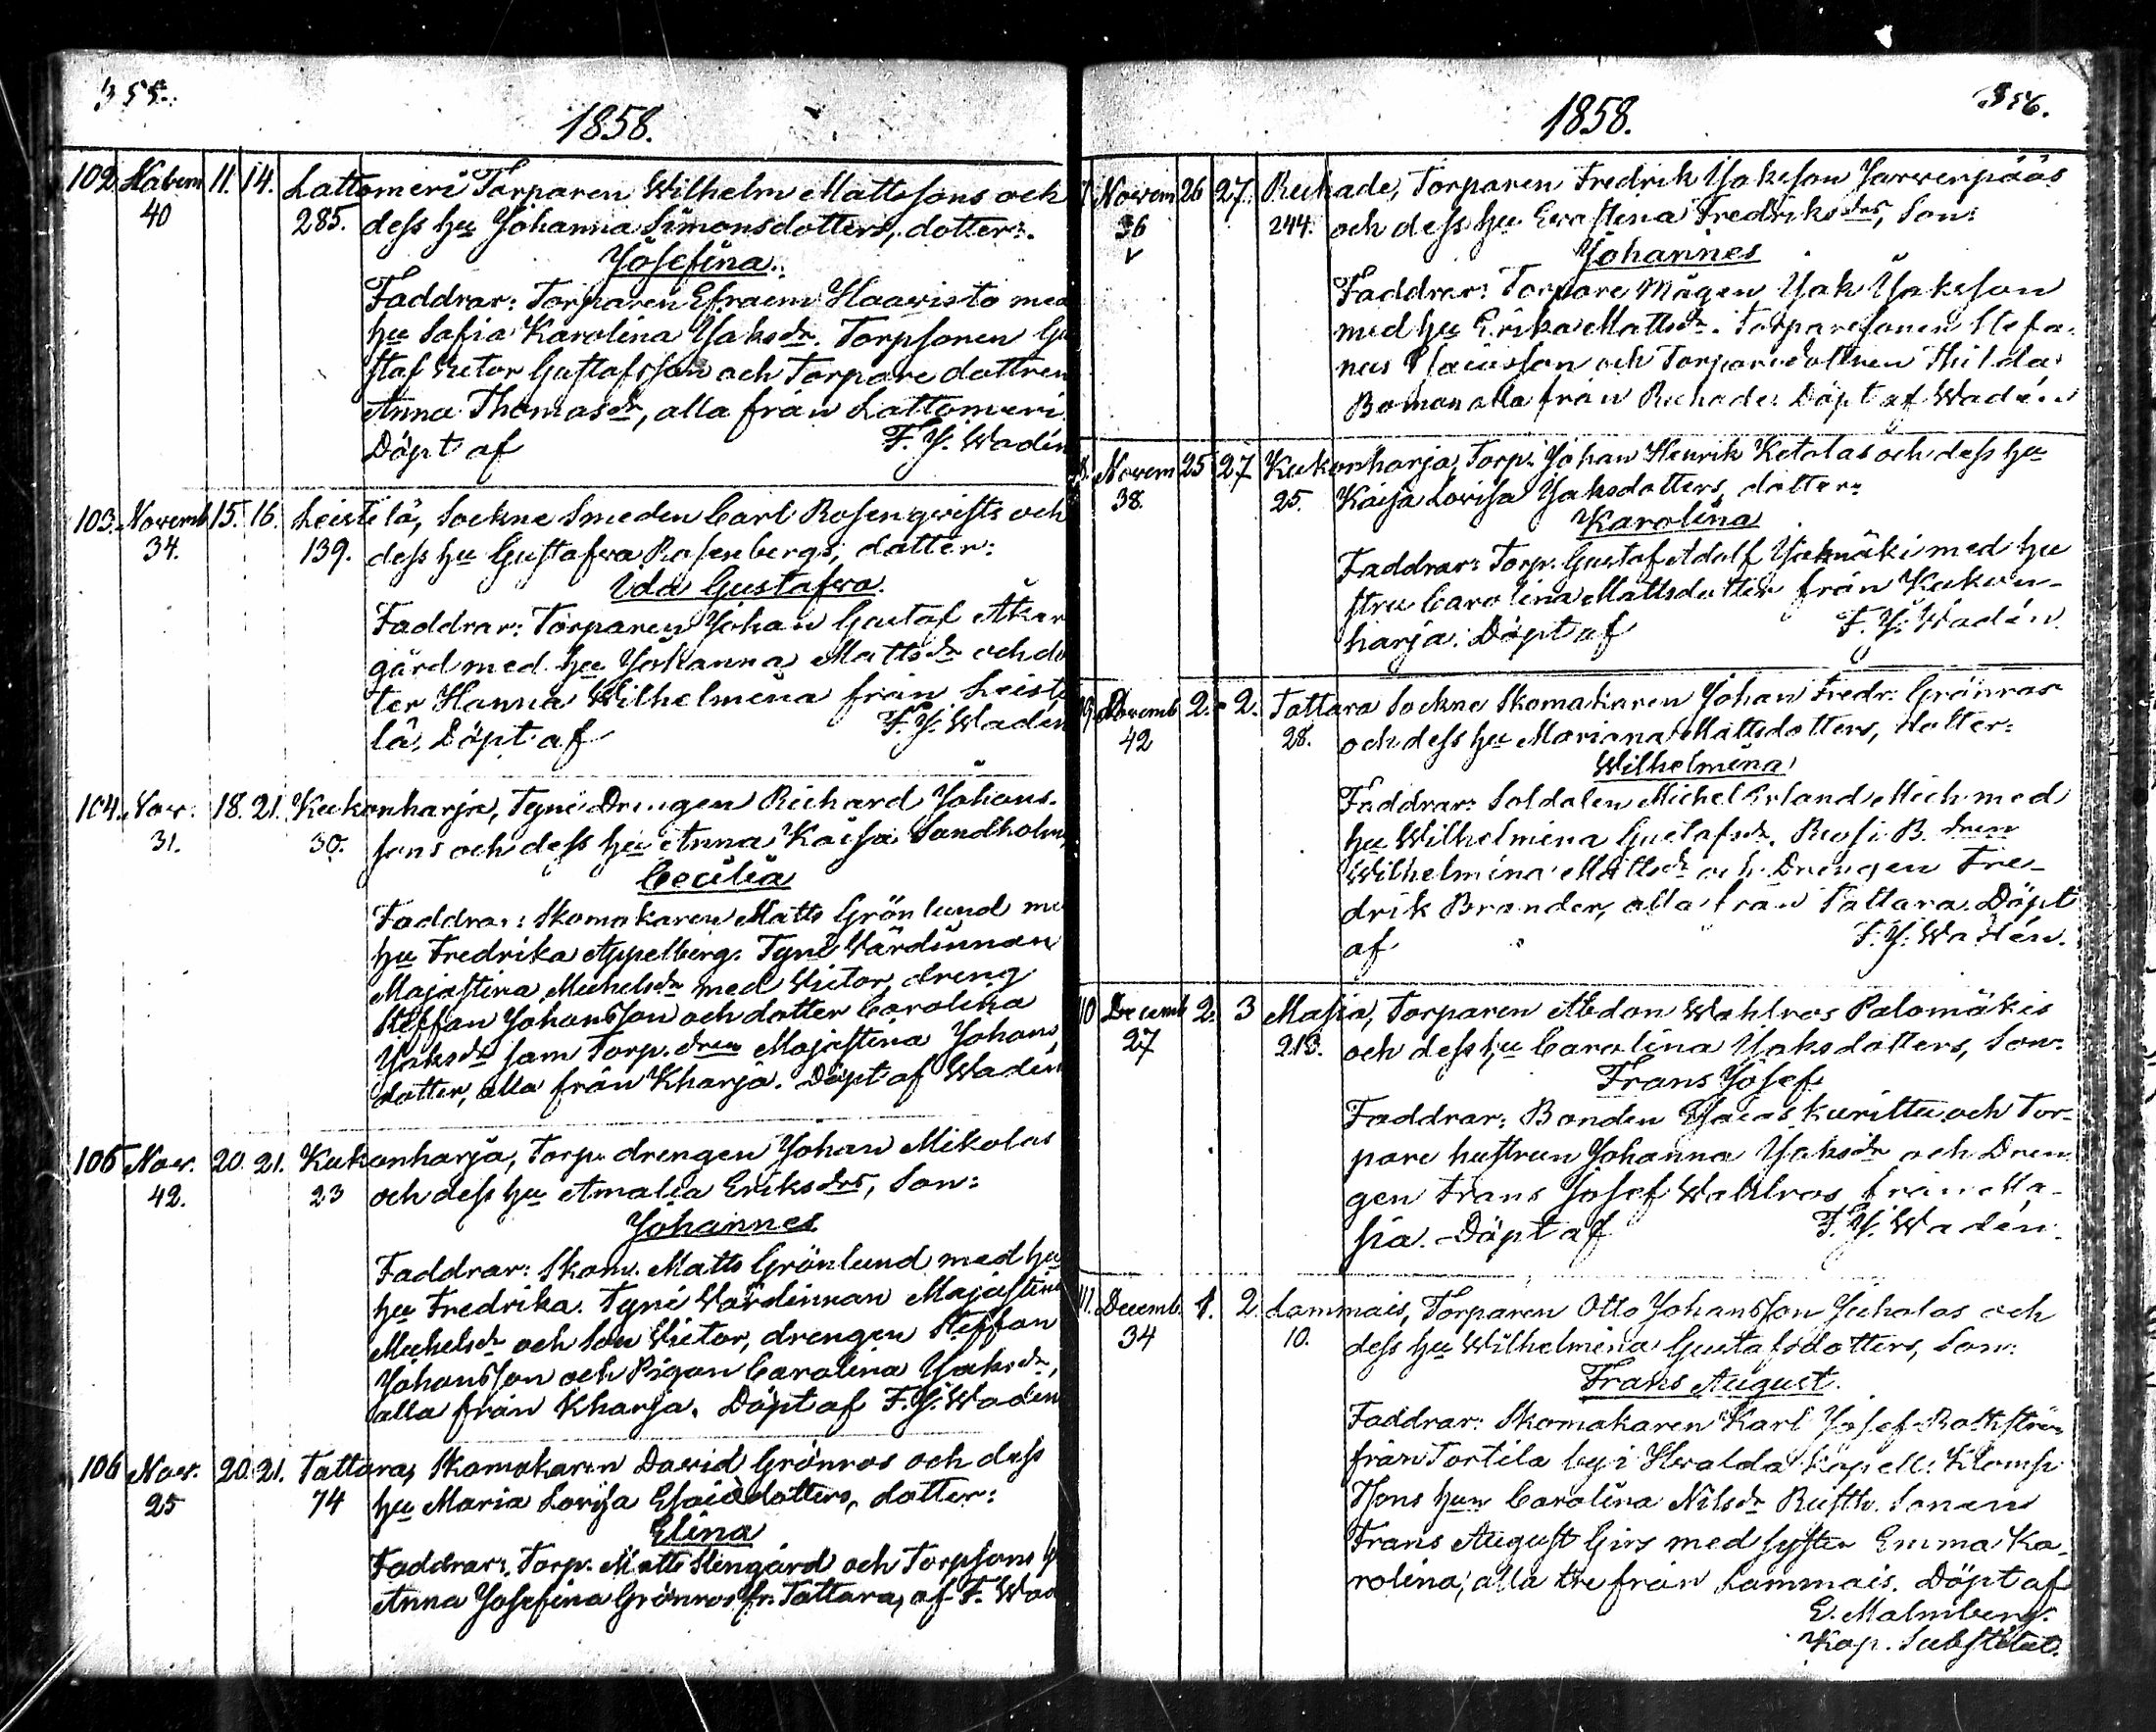 355.
1858.
102 Novem 11. 14. Lattomeri Torparen Wilhelm Mattssons och
40 285. dess hu Johanna Simonsdotters, dotter:
Josefina.
Faddrar: Torparen Efraem Haawisto med
hu Sofia Karolina Jaksdr. Torpsonen Gu
staf Victor Gustafsson och Torpare dottren
Anna Thomasdr, alla från Lattomeri
Döpt af F. J. Wadén
103. Novemb 15. 16. Leistelä, Sockne Smeden Carl Rosenqvists och
34. 139. dess hu Gustafwa Rosenbergs, dotter:
Ida Gustafwa.
Faddrar: Torparen Johan Gustaf Åker
gård med hu Johanna Mattsdr och do
ter Hanna Wilhelmina från Leiste
lä. Döpt af F. J. Wadén
104. Nov. 18. 21. Kukonharja, Tyni Drengen Richard Johans-
31. 30. sons och dess hu Anna Kaisa Sandholm,
Cecilia
Faddrar: Skomakaren Matts Grönlund me
hu Fredrika Appelberg. Tyni Värdinnan
Majastina Michelsdr med Victor, dreng
Steffan Johansson och dotter Carolina
Jaksdr sam Torp. dren Majastina Johans
dotter, alla från Kharja. Döpt af Wadén
105 Nov. 20. 21. Kukonharja, Torp. drengen Johan Mikolas
42. 23 och dess hu Amalia Eriksdrs, Son:
Johannes
Faddrar: Skom. Matts Grönlund med hu
hu Fredrika. Tyni Värdinnan Majastina
Michelsdr och Son Victor, drengen Steffan
Johansson och Pigan Carolina Jaksdr,
alla från Kharja. Döpt af F. J. Wadén
106 Nov. 20. 21. Tattara, Skomakaren David Grönros och dess
25 74 hu Maria Lovisa Esaiædotters, dotter:
Elina
Faddrar: Torp. Matts Stengård och Torpsons
Anna Josefina Grönros fr. Tattara, af F. Wad
356.
1858.
7 Novem 26 27. Ruhade, Torparen Fredrik Jakeson Jarvenpääs
36 244. och dess hu Evastina Fredriksdrs, Son:
Johannes
Faddrar: Torpare Mågen Jak Jakeson
med hu Erika Mattsdr. Torparesonen Stefa-
nus Esaiasson och Torparedottren Hilda
Boman alla från Ruhade. Döpt af Wadén
8. Novem 25 27 Kukonharja, Torp. Johan Henrik Ketolas och dess hu
38. 25. Kaisa Lovisa Jaksdotters, dotter:
Karolina
Faddrar: Torp. Gustaf Adolf Yahmäki med hu
stru Carolina Mattsdotter från Kukon-
harja. Döpt af F. J. Wadén.
9. Decemb 2. 2. Tattara Sockne Skomakaren Johan Fredr. Grönros
42 28. och dess hu Mariana Mattsdotters, dotter:
Wilhelmina
Faddrar: Soldaten Michel Erland Mich med
hu Wilhelmina Gustafsdr. Rusi B. dren
Wilhelmina Mattsdr och Drengen Fre-
drik Brander, alla från Tattara. Döpt
af F. J. Wadén.
110 Decemb 2. 3 Masia, Torparen Abdon Wahlros Palomäkis
27 213. och dess hu Carolina Jaksdotters, Son:
Frans Josef
Faddrar: Bonden Esaias Kurittu och Tor-
pare hustrun Johanna Jaksdr och Dren-
gen Frans Josef Wahlros från Ma-
sia. Döpt af F. J. Wadén.
111. Decemb. 1. 2. Lammais, Torparen Otto Johansson Juholas och
34 10. dess hu Wilhelmina Gustafsdotters, Son:
Frans August.
Faddrar: Skomakaren Karl Josef Rothström
från Tortila by i Hvalda Kapell. Klomp
Jsons hun Carolina Nilsdr Rusth. Sonen
Frans August Girs med syster Emma Ka-
rolina, alla tre från Lammais. Döpt af
E. Malmberg.
Kap. Substitut.